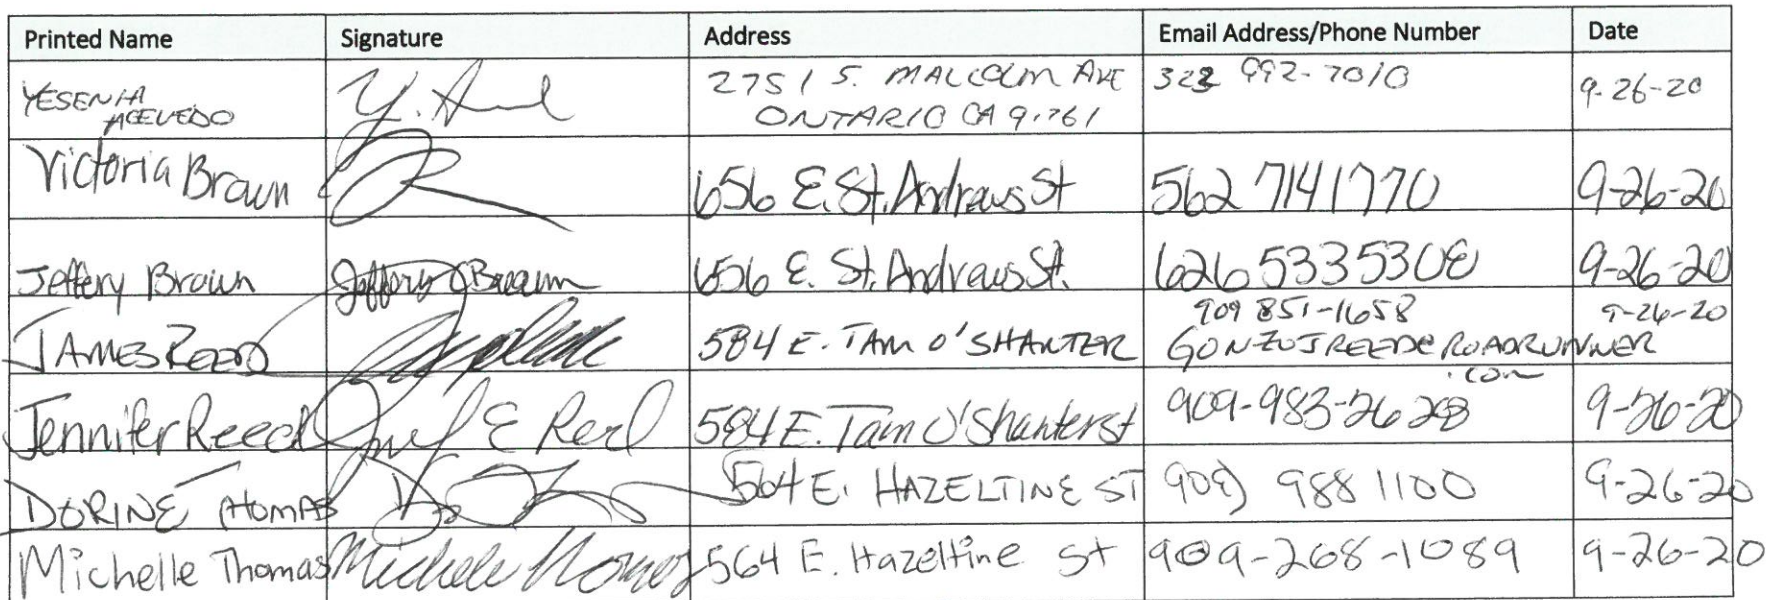 Printed Name Signature Address Email Address/Phone Number Date
YESENIA ACEVEDO 2751 S. MALCOLM AVE 323 992-7010 9-26-20
ONTARIO CA 91761
Victoria Brown 656 E. St. Andrews St 562 7141770 9-26-20
Jeffery Brown Jeffery Brown 656 E. St. Andrews St. 626 5335308 9-26-20
909 851-1658 9-26-20
JAMES REED 584 E. TAM O'SHANTER GONZOJREED@ROADRUNNER
.com
Jennifer Reed 584 E. Tam O'Shanter st 909-983-2628 9-26-20
DORINE THOMAS 564 E. HAZELTINE ST 909) 988 1100 9-26-20
Michelle Thomas Michele Thomas 564 E. Hazeltine St 909-268-1089 9-26-20